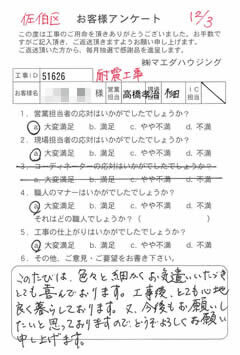 佐伯区 お客様アンケート 12/3
この度は工事のご用命を頂きありがとうございました。お手数で
すがご記入頂き、ご返送頂きますようお願い申し上げます。
ご返送頂いた方から、毎月抽選で感謝品を進呈します。
㈱マエダハウジング
工事ID 51626 耐震工事
お客様名 様 営業担当 高橋孝治 工事担当 作田
1．営業担当者の応対はいかがでしたでしょうか？
a. 大変満足 b. 満足 c. やや不満 d. 不満
2．現場担当者の応対はいかがでしたでしょうか？
a. 大変満足 b. 満足 c. やや不満 d. 不満
3．コーディネーターの応対はいかがでしたでしょうか？
a. 大変満足 b. 満足 c. やや不満 d. 不満
4．職人のマナーはいかがでしたでしょうか？
a. 大変満足 b. 満足 c. やや不満 d. 不満
それはどの職人でしょうか？（ ）
5．工事の仕上がりはいかがでしたでしょうか？
a. 大変満足 b. 満足 c. やや不満 d. 不満
6．その他、ご意見・ご要望をお書き下さい。
このたびは、色々と細かくお気遣いいただき
とても喜んでおります。工事後、とても心地
良く暮らしております。又、今後もお願いし
たいと思っておりますので、どうぞよろしくお願い
申し上げます。